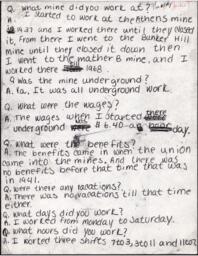 Q. What mine did you work at?
A. I started to work at the Athens mine
1937 and I worked there until they closed
it, from there I went to the Bunker Hill
mine until they closed it down then
I went to the mather B mine, and I
worked there 1968.
Q. Was the mine underground?
A. Ya. It was all underground work.
Q. What were the wages?
A. The wages when I started
underground 8 to.40 a day.
Q. What were the benefits?
A. The benefits came in when the union
came into the mines. And there was
no benefits before that time that was
in 1941.
Q. Were there any vacations?
A. There was no vacations till that time
either.
Q. What days did you work?
A. I worked from monday to Saturday.
Q. What hours did you work?
A. I worked three shifts 7 to 3, 3 to 11 and 11 to 7